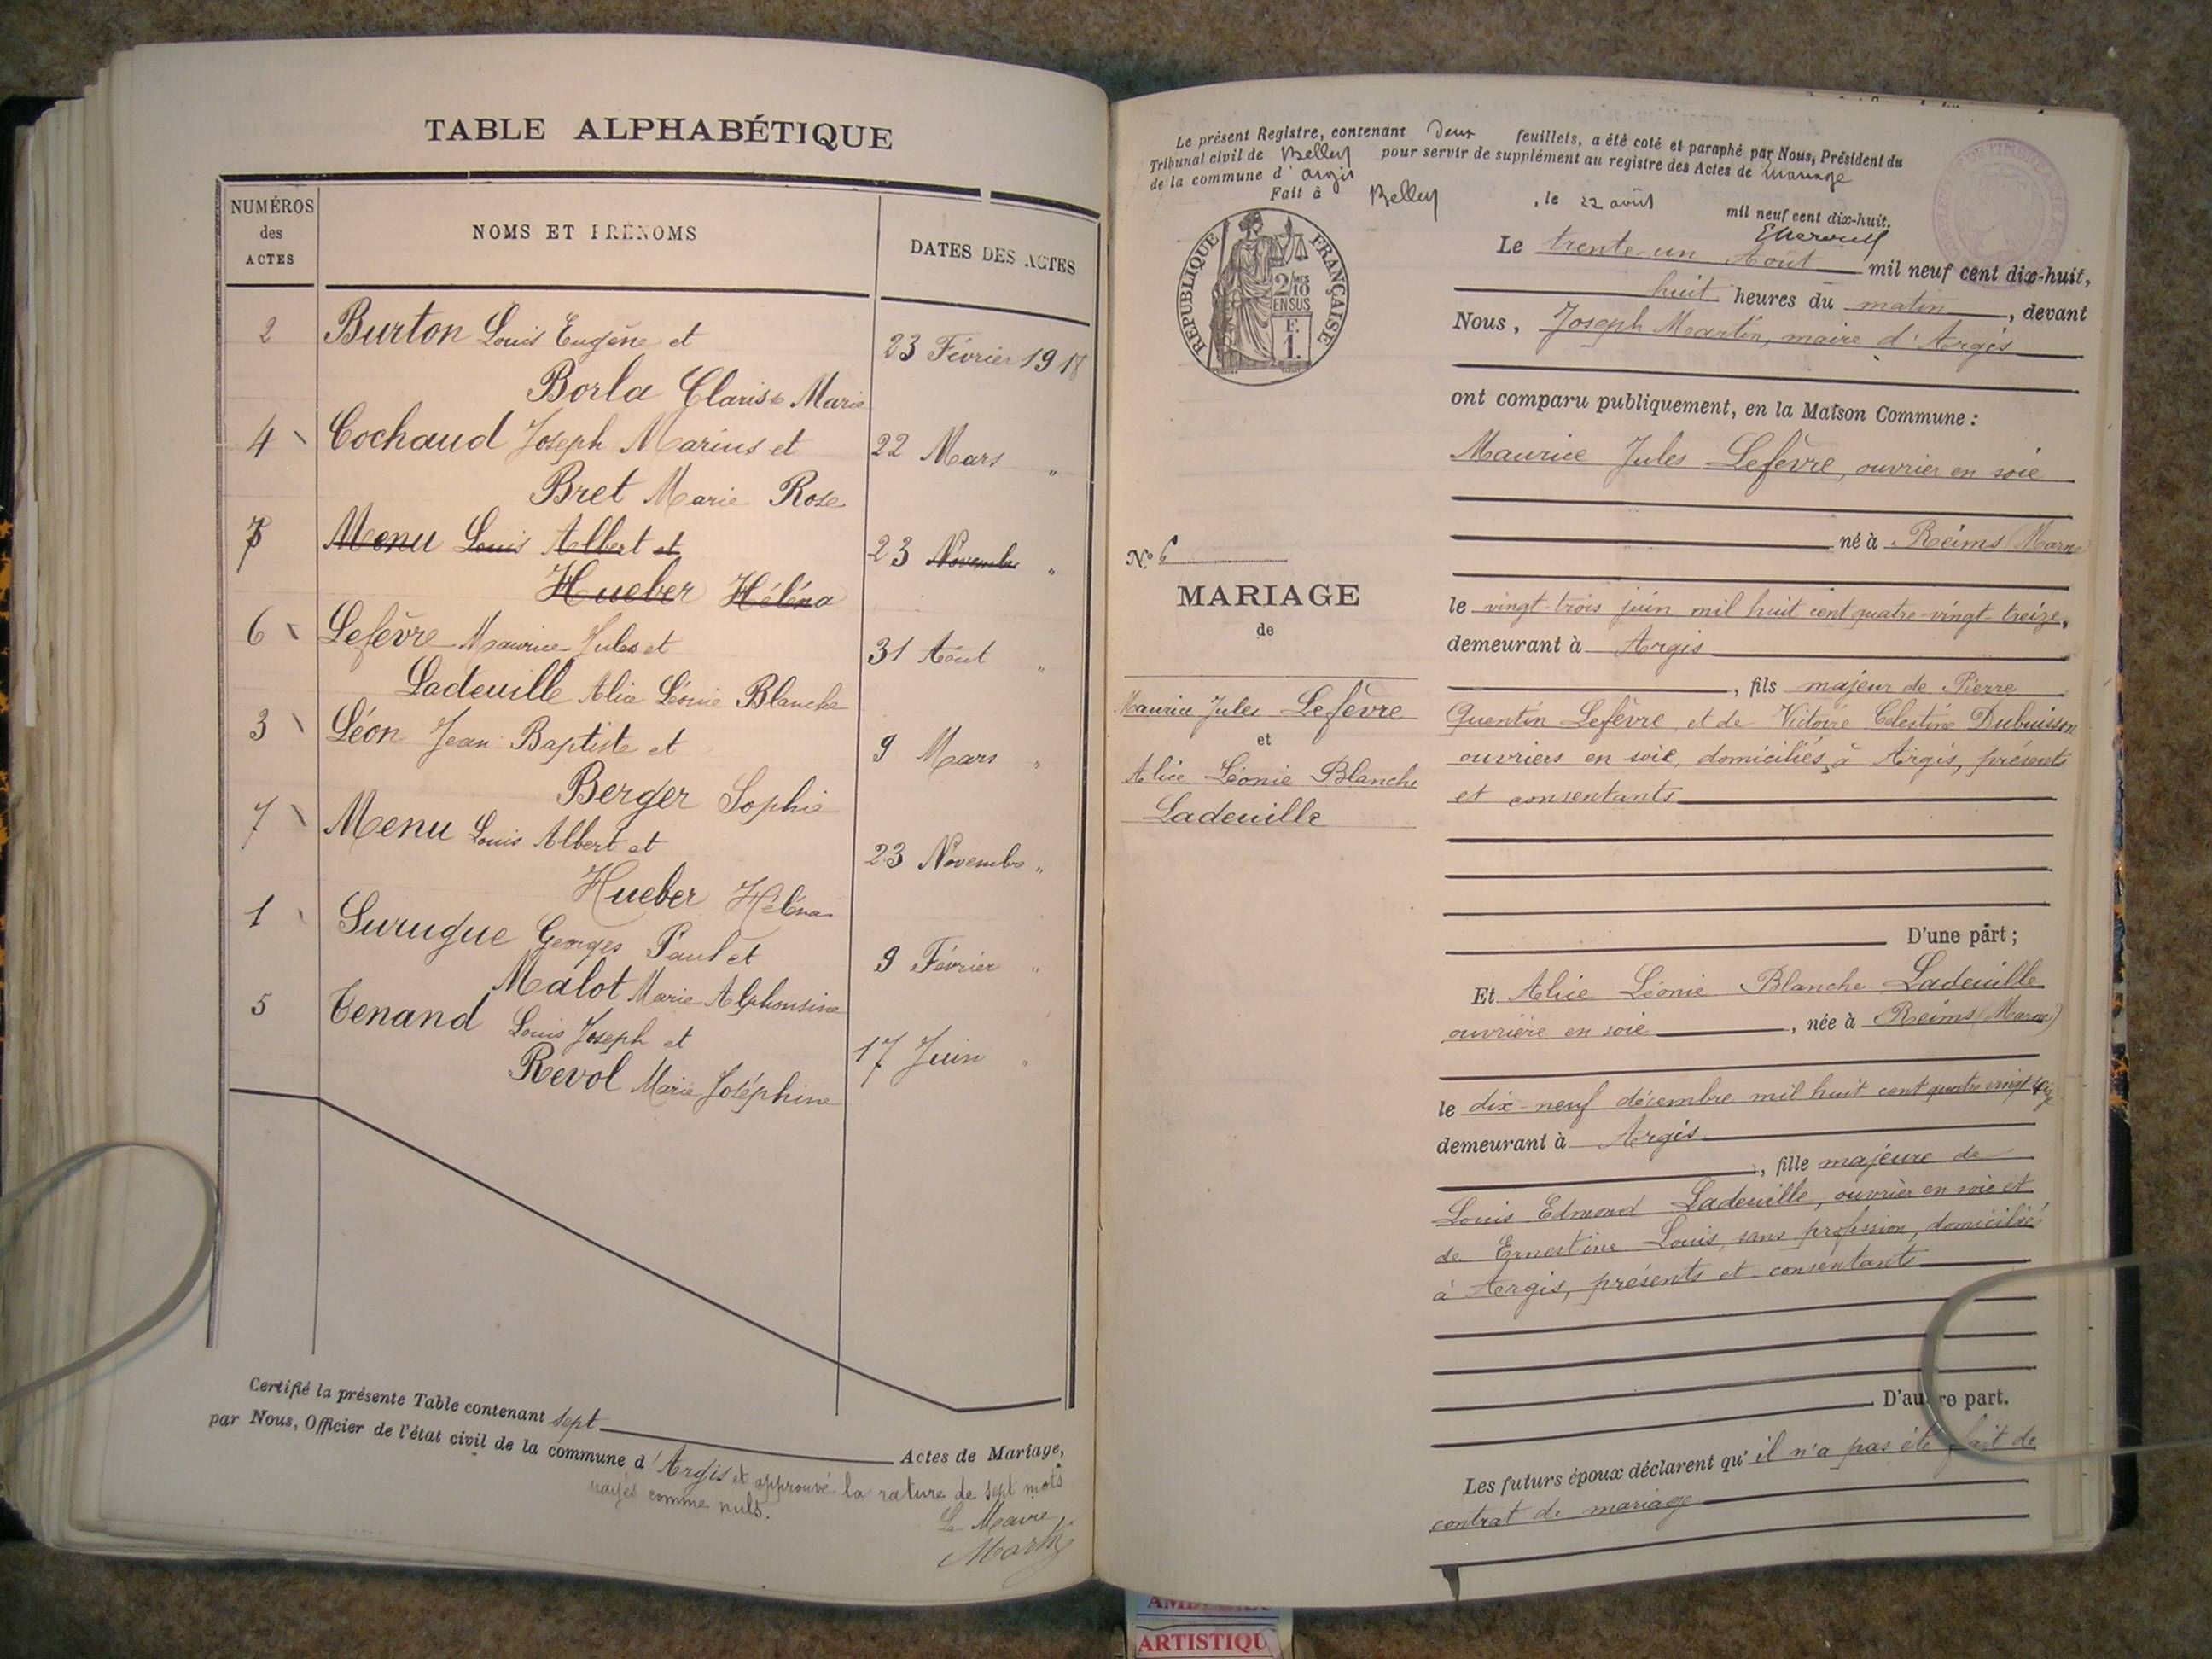 TABLE ALPHABÉTIQUE
NUMÉROS
des
ACTES
NOMS ET PRÉNOMS
DATES DES ACTES
2 Burton Louis Eugène et 23 Février 1918
Borla Clarisse Marie
4 Cochaud Joseph Marius et 22 Mars "
Bret Marie Rose
7 Menu Louis Albert et 23 Novembre "
Hueber Héléna
6 Lefèvre Maurice Jules et 31 Août "
Ladeuille Alice Léonie Blanche
3 Léon Jean Baptiste et 9 Mars "
Berger Sophie
7 Menu Louis Albert et 23 Novembre "
Hueber Héléna
1 Surugue Georges Paul et 9 Février "
Malot Marie Alphonsine
5 Tenand Louis Joseph et 17 Juin "
Revol Marie Joséphine
Certifié la présente Table contenant sept Actes de Mariage,
par Nous, Officier de l'état civil de la commune d'Argis et approuvé la rature de sept mots
rayés comme nuls.
Le Maire
Martin
Le présent Registre, contenant Deux feuillets, a été coté et paraphé par Nous, Président du
Tribunal civil de Belley pour servir de supplément au registre des Actes de Mariage
de la commune d'Argis
Fait à Belley, le 22 août mil neuf cent dix-huit.
RÉPUBLIQUE FRANÇAISE
2/10
EN SUS
F.
1.
Le trente-un Août mil neuf cent dix-huit,
huit heures du matin, devant
Nous, Joseph Martin, maire d'Argis
ont comparu publiquement, en la Maison Commune :
Maurice Jules Lefèvre, ouvrier en soie
né à Reims (Marne
le vingt-trois juin mil huit cent quatre-vingt-treize,
demeurant à Argis
, fils majeur de Pierre
Quentin Lefèvre et de Victoire Célestine Dubuisson
ouvriers en soie, domiciliés à Argis, présents
et consentants
D'une part ;
N° 6
MARIAGE
de
Maurice Jules Lefèvre
et
Alice Léonie Blanche
Ladeuille
Et Alice Léonie Blanche Ladeuille
ouvrière en soie, née à Reims (Marne)
le dix-neuf décembre mil huit cent quatre vingt
demeurant à Argis
, fille majeure de
Louis Edmond Ladeuille, ouvrier en soie et
de Ernestine Louis, sans profession, domiciliés
à Argis, présents et consentants
D'autre part.
Les futurs époux déclarent qu'il n'a pas été fait de
contrat de mariage
ARTISTIQU